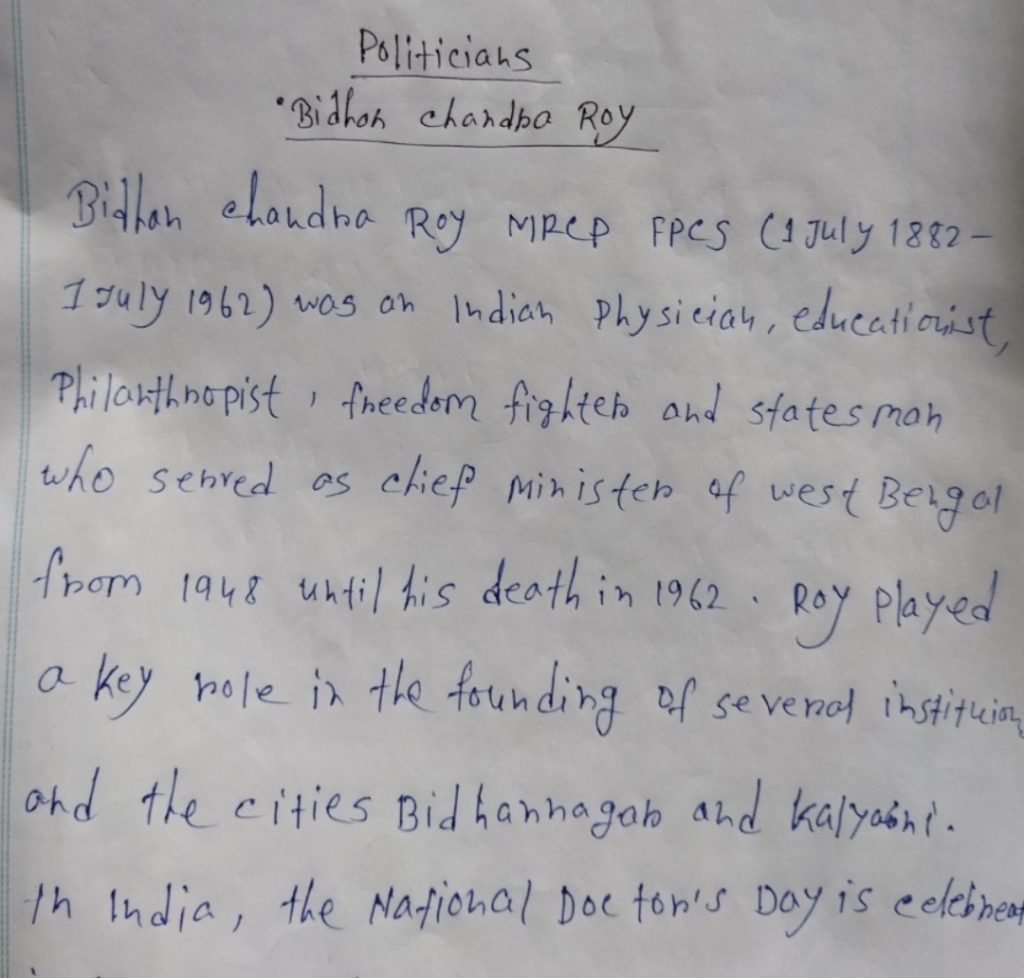 Politicians
• Bidhan chandra Roy
Bidhan chandra Roy MRCP FPCS (1 July 1882 –
1 July 1962) was an Indian Physician, educationist,
Philanthropist, freedom fighter and statesman
who served as chief Minister of west Bengal
from 1948 until his death in 1962. Roy Played
a key role in the founding of several instituion
and the cities Bidhannagar and Kalyani.
In India, the National Doctor's Day is celebreat